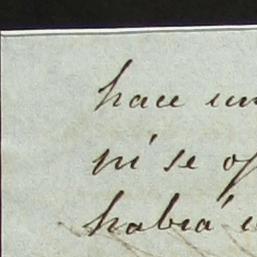 hace un
ni se op
habia